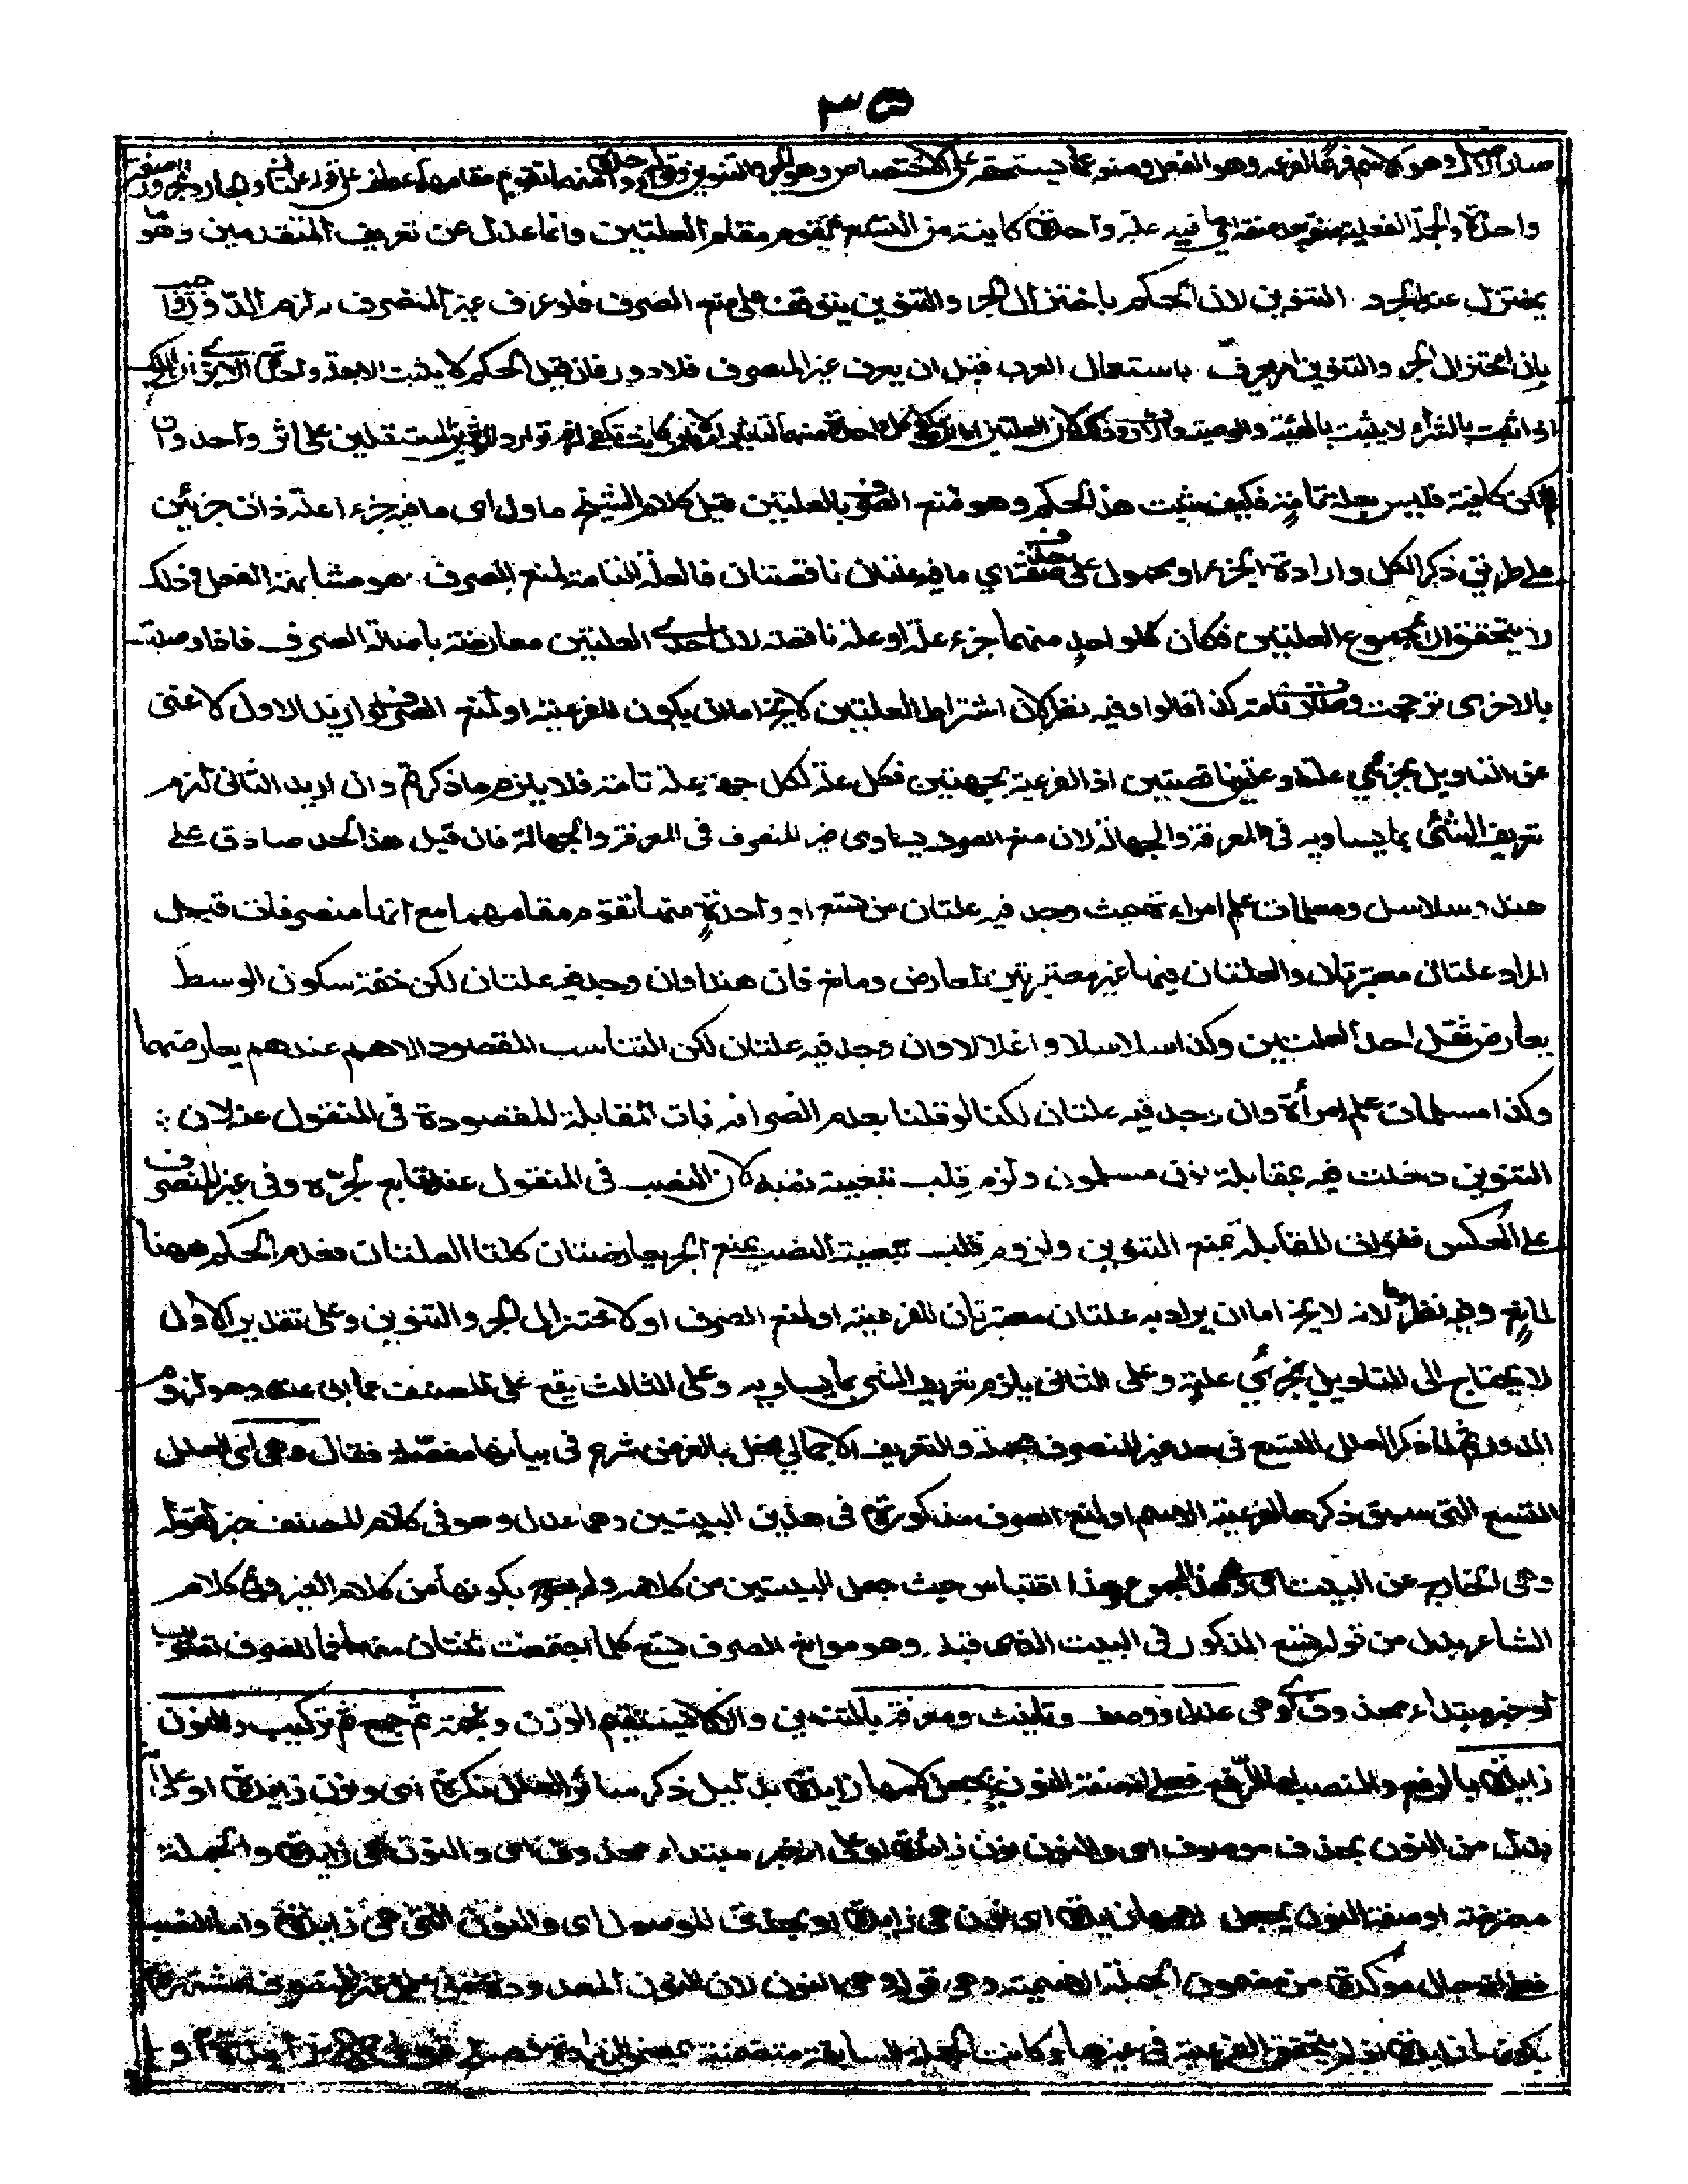 ٣٥
صار الاصل وهو الاسم فرعا لفرعه وهو الفعل ومنع عما يستحقه على الاختصاص وهو الجر والتنوين وقوله او واحدة منها تقوم مقامهما عطف على قوله علتان والجار والمجرور صفة
واحدة والجملة الفعلية صفة بعد صفة اي ما فيه علة واحدة كاينة من التسع يقوم مقام العلتين وانما عدل عن تعريف المتقدمين وهو ما
يختزل عنه الجر و التنوين لان الحكم باختزال الجر والتنوين يتوقف على منع الصرف فلو عرف غير المنصرف به لزم الدور
بان اختزال الجر والتنوين امر يعرف باستعمال العرب قبل ان يعرف غير المنصرف فلا دور فان قيل الحكم لا يثبت الا بعلة واحدة الا يرى ان الملك
اذا ثبت بالشراء لا يثبت بالهبة والوصية على اثر واحد وان
لم تكن كافية فليس بعلة تامة فكيف يثبت هذا الحكم وهو منع الصرف بالعلتين قيل كلام الشيخ ماول اي ما فيه جزء اعلة ذات جزئين
على طريق ذكر الكل وارادة الجزء او محمول على حذف صفة اي ما فيه علتان ناقصتان فالعلة التامة لمنع الصرف هو مشابهة الفعل وذلك
لا يتحقق الا بمجموع العلتين فكان كل واحد منهما جزء علة او علة ناقصة لان احدى العلتين معارضة باصالة الصرف فاذا وصلت
بالاخرى ترجحت وصارت تامة كذا قالوا وفيه نظر لان اشتراط العلتين لا يخ اما ان يكون للفرعية او لمنع الصرف لو اريد الاول لاغنى
عن التاويل بجزئي علة او علتين ناقصتين اذ الفرعية بجهتين فكل علة لكل جهة علة تامة فلا يلزم ما ذكرتم وان اريد الثاني لزم
تعريف الشئ بما يساويه في المعرفة والجهالة لان منع الصرف يساوى غير المنصرف في المعرفة والجهالة فان قيل هذا الحد صادق على
هند وسلاسل ومسلمات علم امراءة بحيث وجد فيه علتان من تسع او واحدة منها تقوم مقامهما مع انها منصرفات قيل
المراد علتان معتبرتان والعلتان فيها غير معتبرتين لمعارض ومانع فان هندا وان وجد فيه علتان لكن خفة سكون الوسط
يعارض ثقل احد العلتين وكذا سلاسلا واغلالا وان وجد فيه علتان لكن التناسب المقصود الاهم عندهم يعارضهما
وكذا مسلمات علم امرأة وان وجد فيه علتان لكنا لو قلنا بعدم انصرافه فات المقابلة المقصودة في المنقول عنه لان
التنوين دخلت فيه بمقابلة نون مسلمون ولزم قلب تبعية نصبه لان النصب في المنقول عنه تابع لجره وفي غير المنصرف
على العكس ففوات المقابلة بمنع التنوين ولزوم قلب تبعية النصب بمنع الجر يعارضان كلتا العلتان فعدم الحكم ههنا
لمانع وفيه نظر لانه لا يخ اما ان يراد به علتان معتبرتان للفرعية او لمنع الصرف او لاختزال الجر والتنوين وعلى تقدير الاول
لا يحتاج الى التاويل بجزئي علة وعلى الثاني يلزم تعريف الشئ بما يساويه وعلى الثالث يقع على المصنف عما ابى عنه وهو لزوم
الدور ثم لما ذكر العلل التسع في حد غير المنصرف مجملة والتعريف الاجمالي مخل بالغرض شرع في بيانها مفصلة فقال وهي اى العلل
التسع التي سبق ذكرها لفرعية الاسم او لمنع الصرف مذكورة في هذين البيتين وهما عدل وهو في كلام المصنف خبر لقوله
وهى الخارج عن البيت اى هذا المجموع وهذا اقتباس حيث جعل البيتين من كلامه ولم يصرح بكونها من كلام الغير وفي كلام
الشاعر بدل من قوله تسع المذكور في البيت الذى قبله وهو موانع الصرف تسع كلما اجتمعت ثنتان منها فما للصرف تصويب
او خبر مبتداء محذوف اى هى عدل ووصف وتانيث ومعرفة بالتنوين والا لا يستقيم الوزن وعجمة ثم جمع ثم تركيب والنون
زايدة بالرفع والنصب اما الرفع فعلى صفة النون بجعل لامها زايدة بدليل ذكر سائر العلل نكرة اى ونون زايدة او على انه
بدل من النون بحذف موصوف اى والنون نون زائدة او على انه خبر مبتداء محذوف اى والنون هى زايدة والجملة
معترضة او صفة النون بجعل لامها زايدة اى نون هى زايدة او بحذف الموصول اى والنون التي هى زايدة واما النصب
فعلى انه حال موكدة من مضمون الجملة الاسمية وهى قوله وهى النون لان النون المعدودة
بكونها زايدة اذ لم يتحقق الفرعية في غيرها وكانت الجملة السابقة متضمنة لمعنى الزيادة